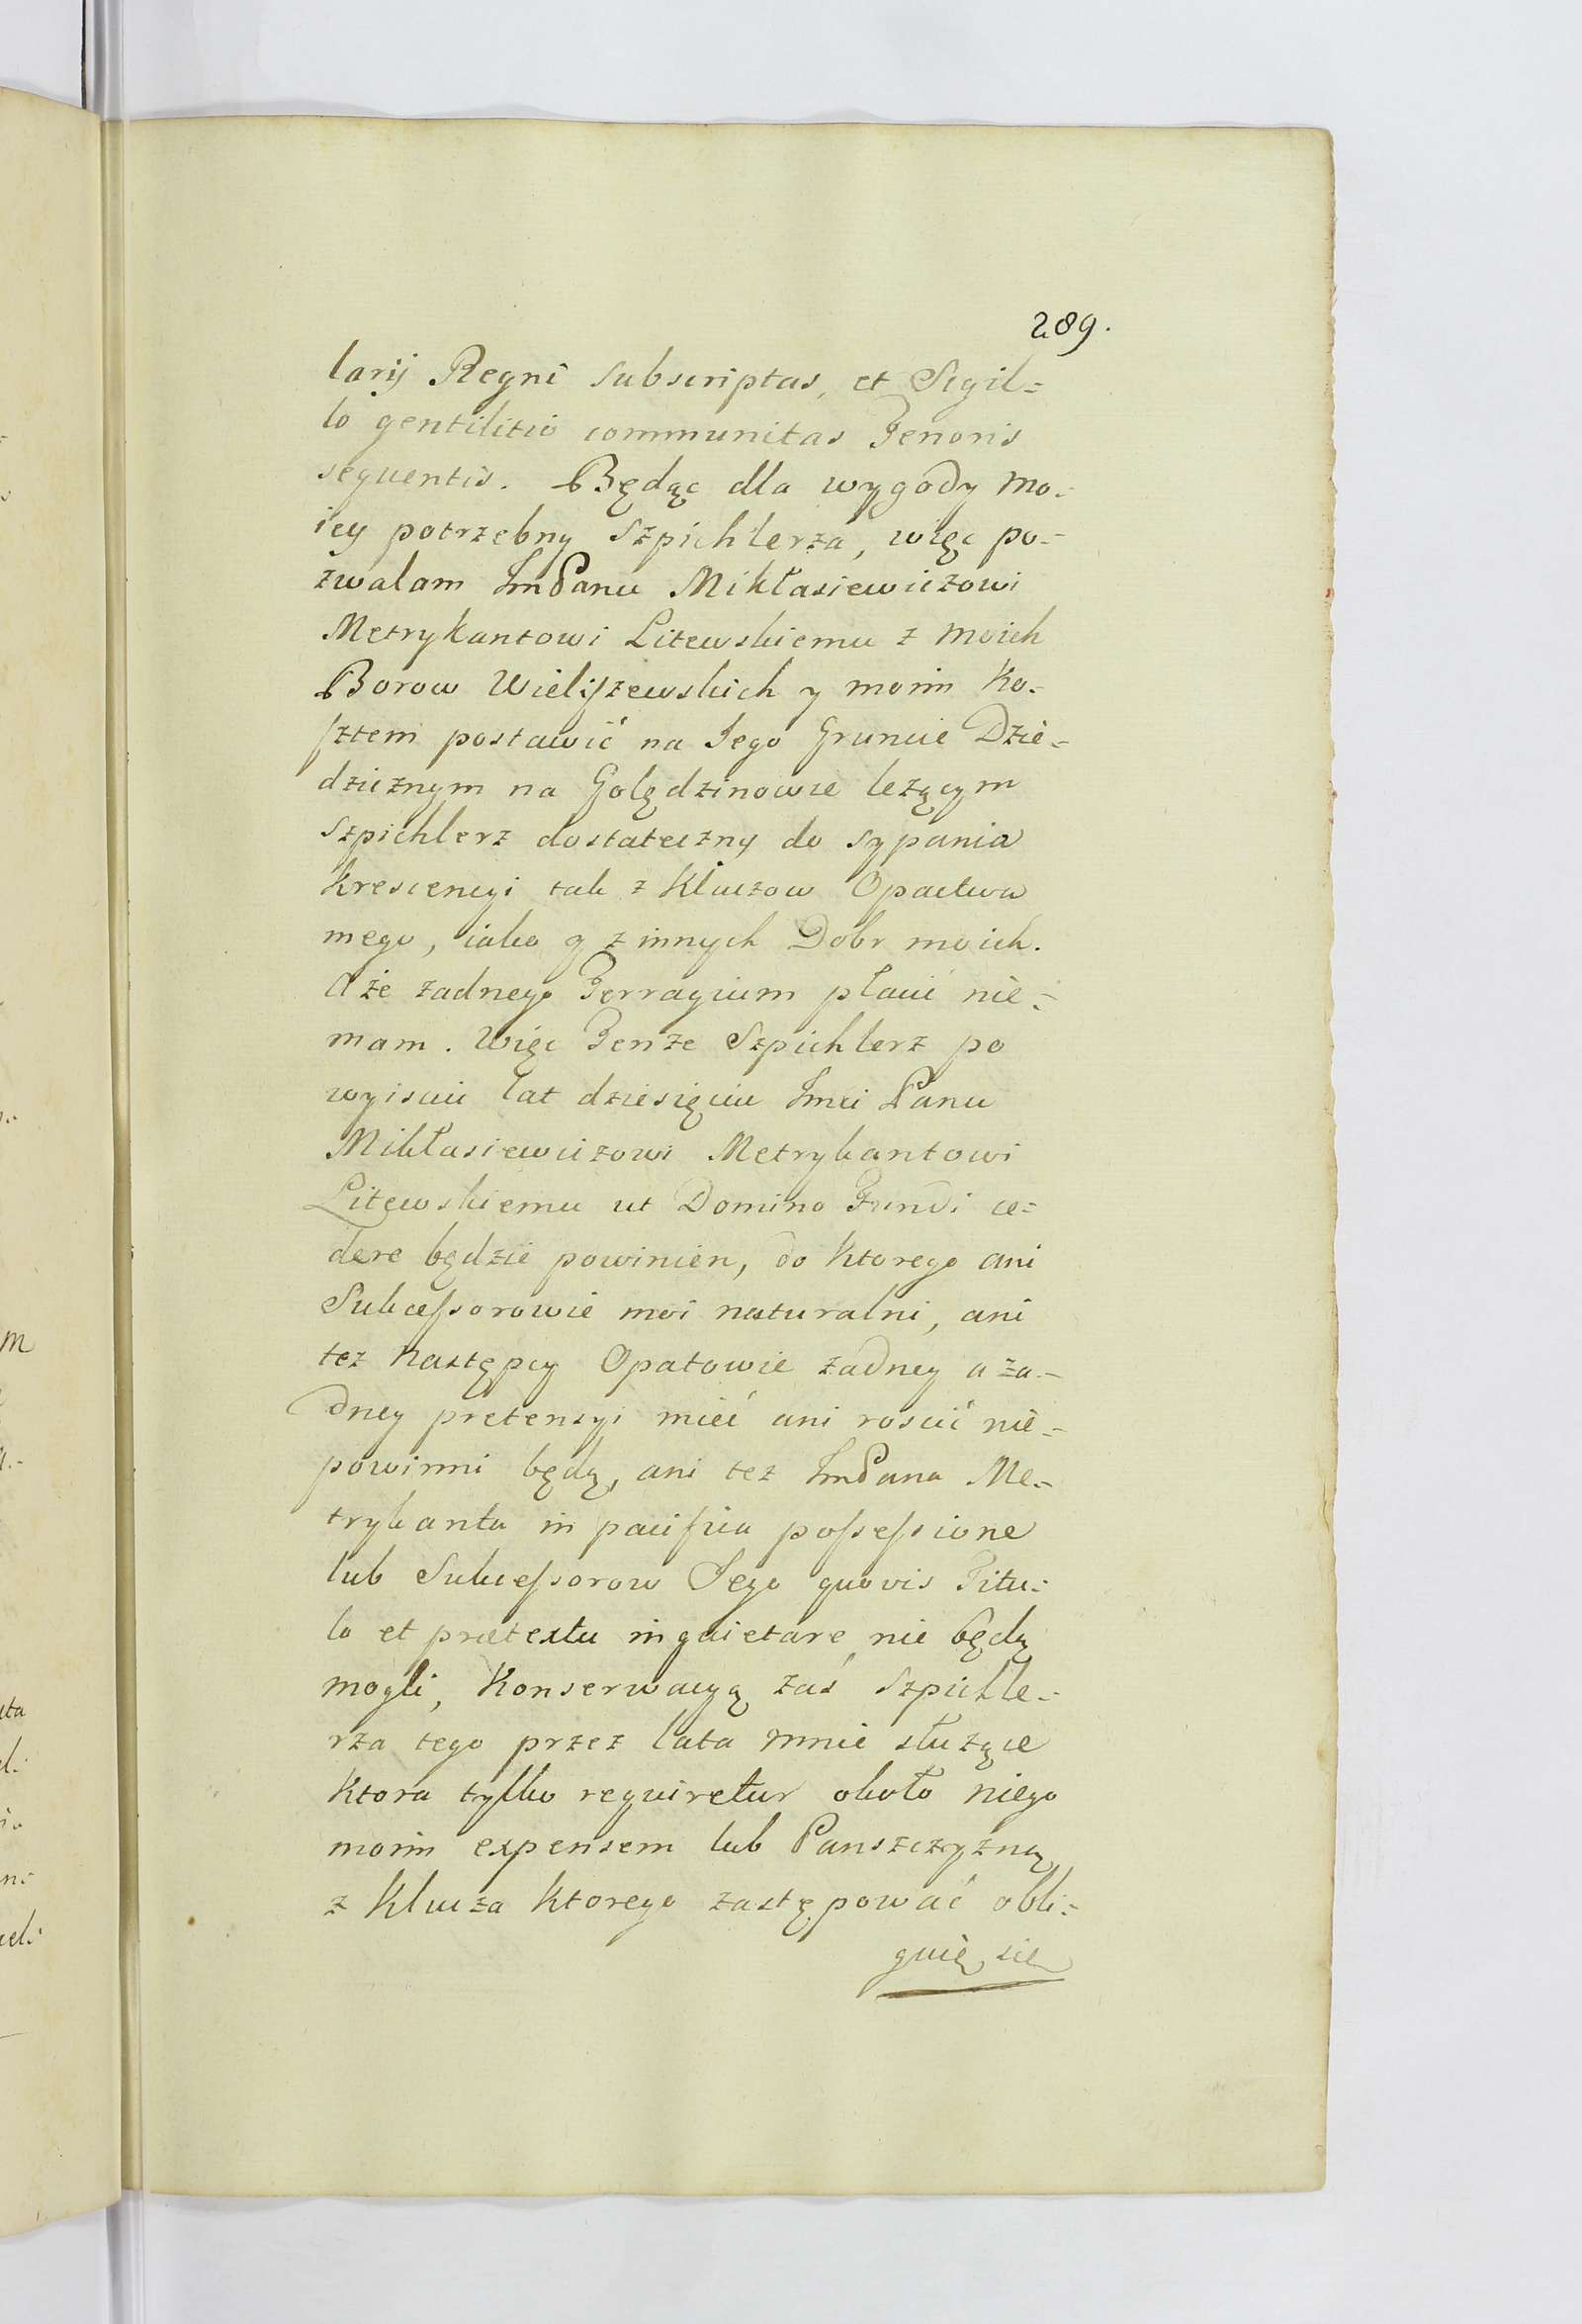 289.
larij Regni subscriptas, et Sigil=
lo gentilitio communitas Tenoris
sequentis. Będąc dla wygody mo=
iey potrzebny Szpichlerza, więc po=
zwalam ImPanu Mikłasiewiczowi
Metrykantowi Litewskiemu z moich
Borow Wieliszewskich y moim Ko=
sztem postawić na Jego Gruncie Dzie=
dzicznym na Golędzinowie leżącym
szpichlerz dostateczny do sypania
krescencyi tak z Kluczow Opactwa
mego, iako y z innych Dobr moich.
A że żadnego Terragium płacić nie=
mam. Więc Tenże Szpichlerz po
wyiściu lat dziesięciu Imci Panu
Mikłasiewiczowi Metrykantowi
Litewskiemu ut Domino Fundi ce=
dere będzie powinien, do ktorego ani
Sukcessorowie moi naturalni, ani
tez Następcy Opatowie żadney a ża=
dney pretensyi mieć ani roscić nie=
powinni będą, ani tez ImPana Me=
trykanta in pacifica possessione
lub Sukcessorow Jego quovis Titu=
lo et prætextu inquietare nie będą
mogli, Konserwacyą zaś Szpichle=
rza tego przez lata mnie służące
Ktora tylko requiretur około niego
moim expensem lub Panszczyzną
z Klucza Ktorego zastępować obli=
guię się